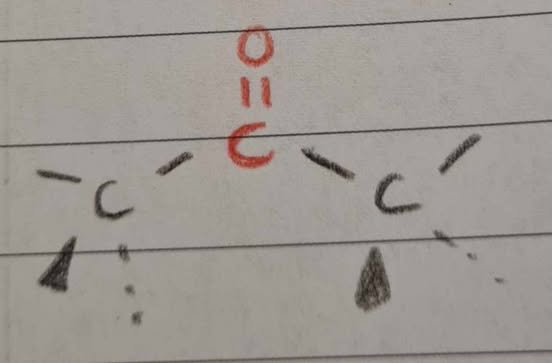 O
C
C C